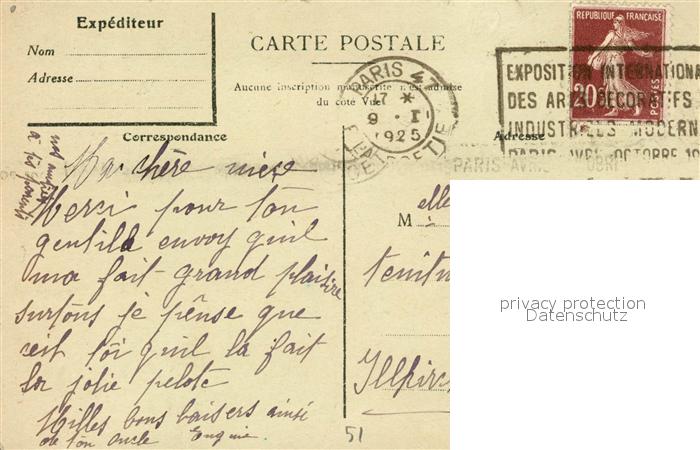 Expéditeur
Nom
Adresse
CARTE POSTALE
Aucune inscription manuscrite n'est admise
du coté Vue
REPUBLIQUE FRANÇAISE
20
POSTES
PARIS 47
17 *
9 · I
1925
EXPOSITION INTERNATIONA
DES ARTS DECORATIFS
INDUSTRIELS MODERN
PARIS AVRIL OCTOBRE 19
Correspondance
Adresse
Ma chère nièce
Merci pour ton
gentille envoy quil
ma fait grand plaisire
surtous je pênse que
ceit toi quil la fait
la jolie pelote
Milles bons baisers ainsi
de ton oncle Eugnie
à toi
M
elle
Illkirc
51
privacy protection
Datenschutz